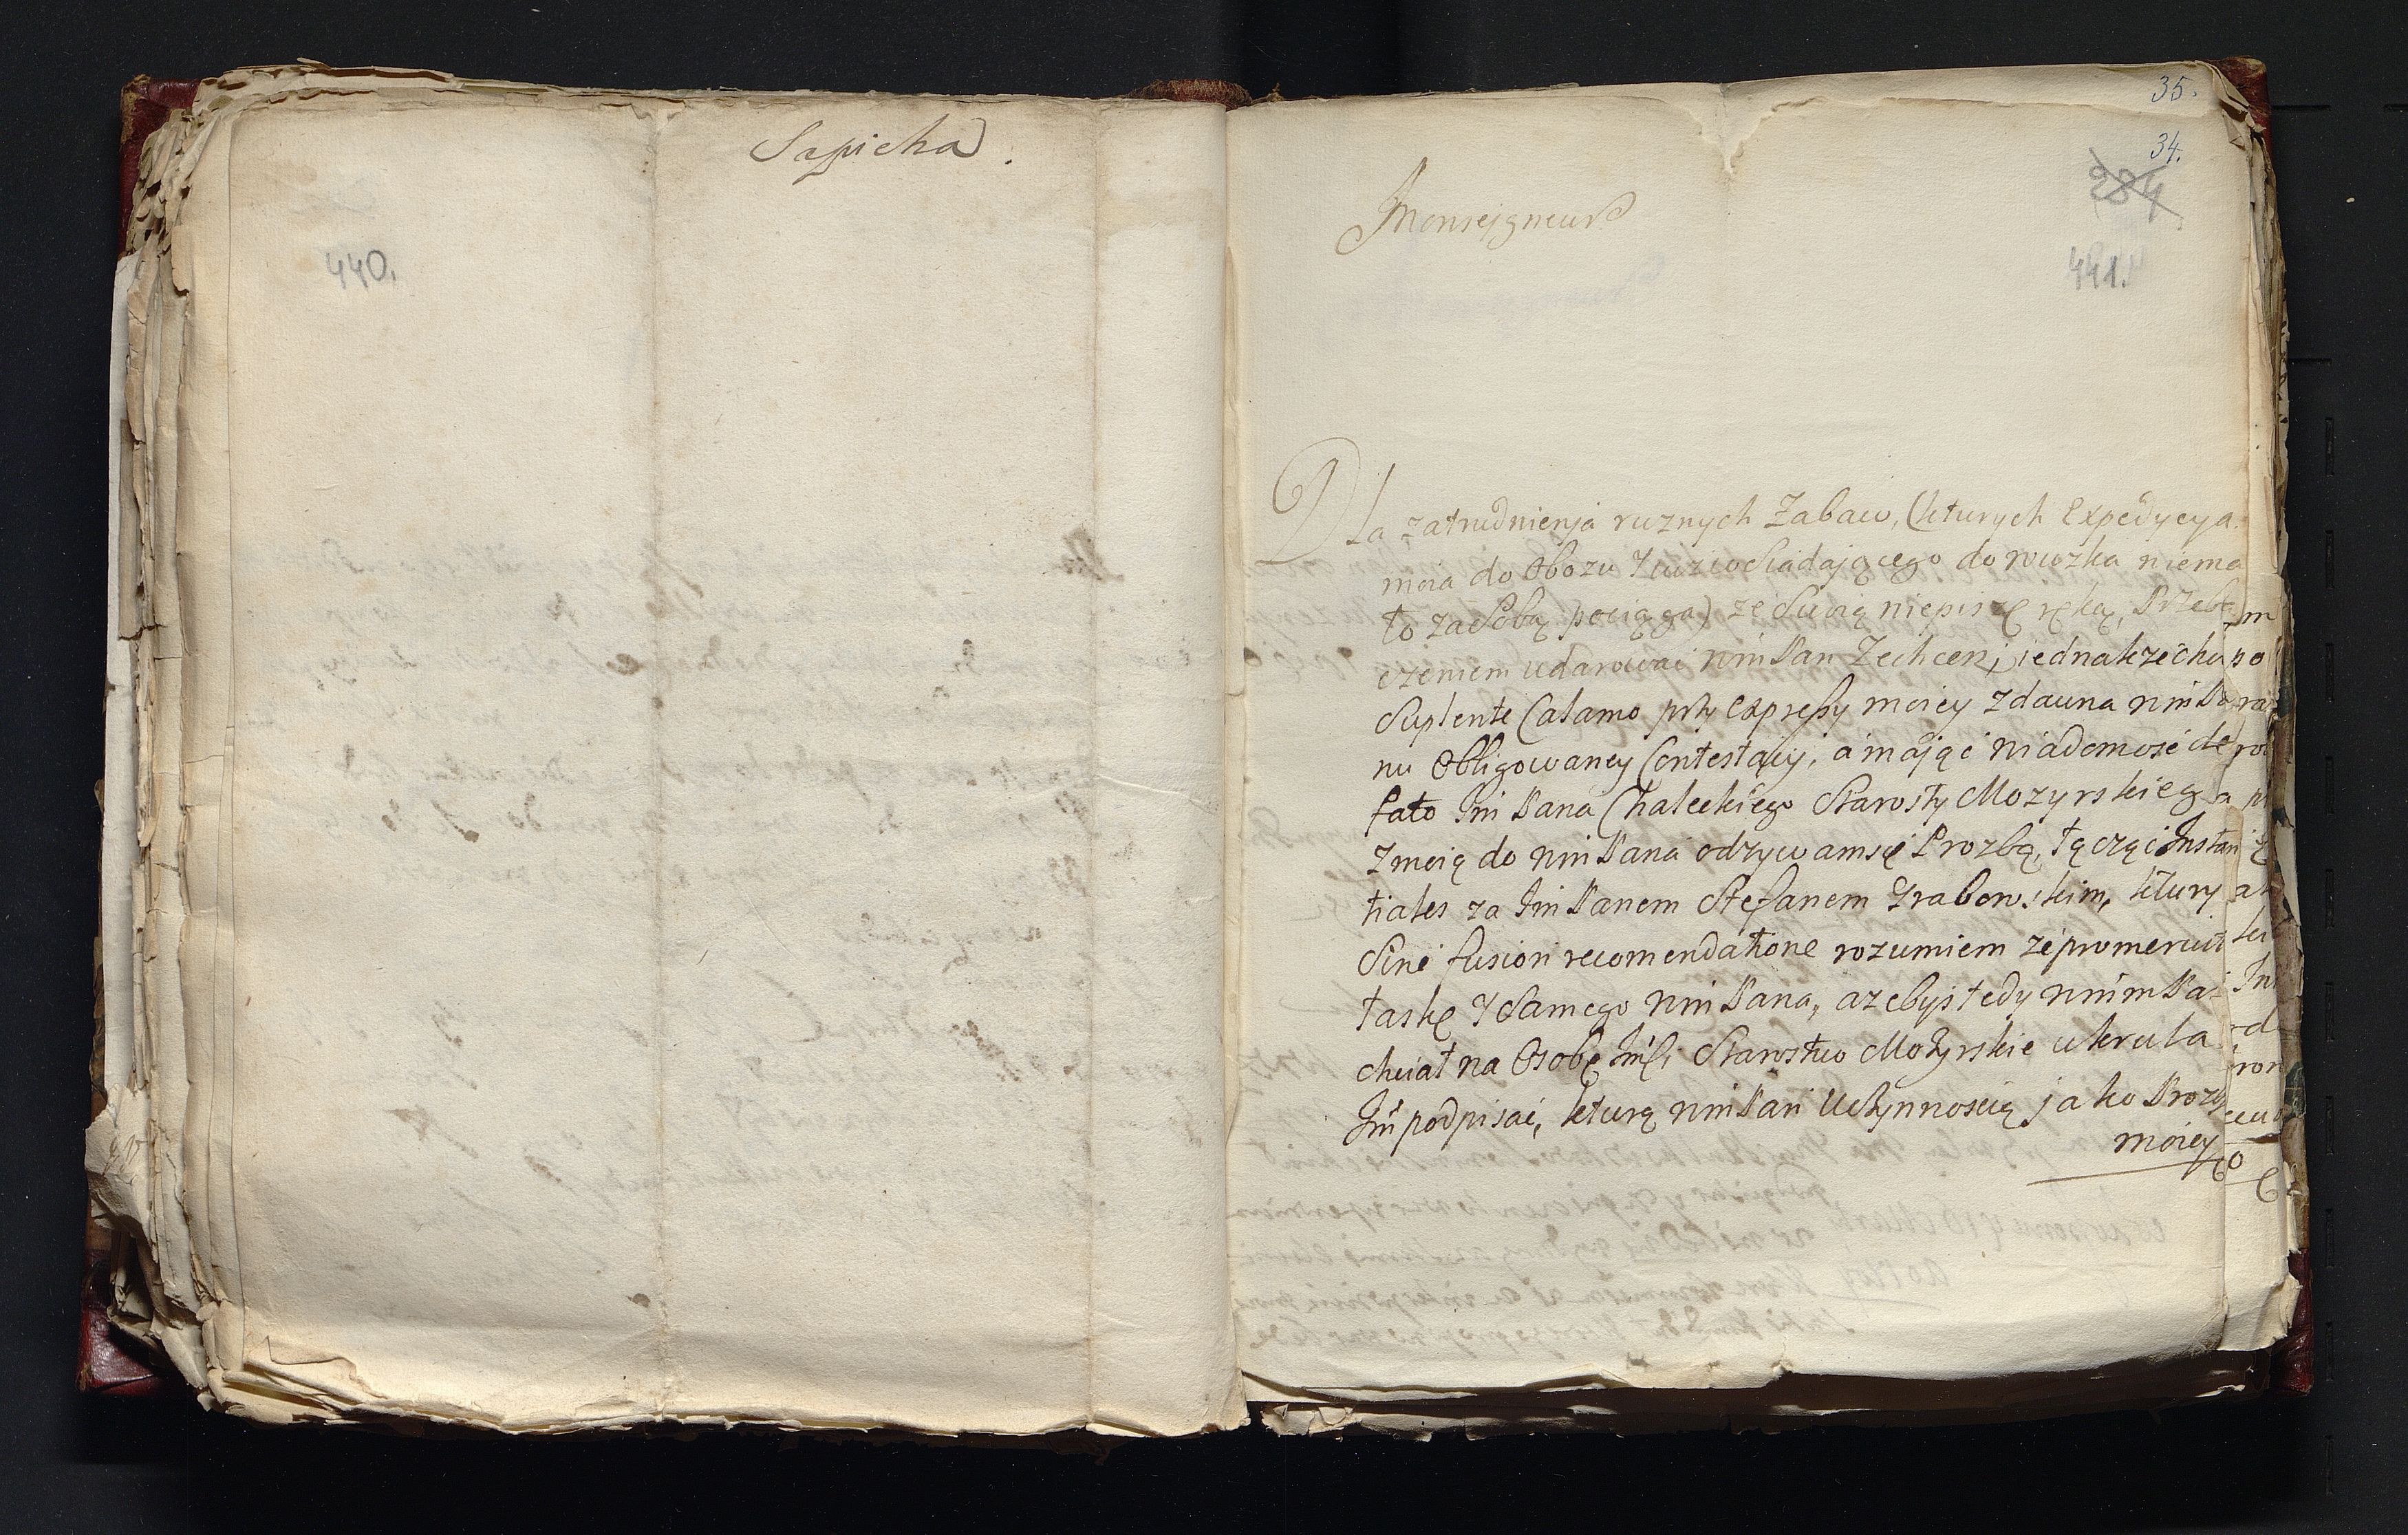 Sapieha.
440.
35.
34.
284
441.
Monsejgneur
Dla zatrudnienja ruznych Zabaw, (kturych Expedycya
moia do Obozu Iuż wsiadaiącego do wozka niema
ło za Sobą pociąga) że Swoią niepiszę ręką, Przeba
czeniem udarować WM Pan Zechcesz, jednakże cho
Suplente Calamo przy Expressy moiey zdawna WM Pa
nu Obligowaney Contestacij, a maiąc wiadomość de
fato Jm Pana Chaleckiego Starosty Mozyrskieg
z moią do WM Pana odzywam się Prozbą, łącząc Instan
tiales za Jm Panem Stefanem Grabowskim, ktury
Sine fusiori recomendatione rozumiem że promeruit
łaskę Y Samego WM Pana, azebyś tedy WMM Pa
chciał na Osobę Jmści Starostwo Mozyrskie u krula
Jm podpisać, kturą WM Pan Uczynnością jako Prozb
moiey